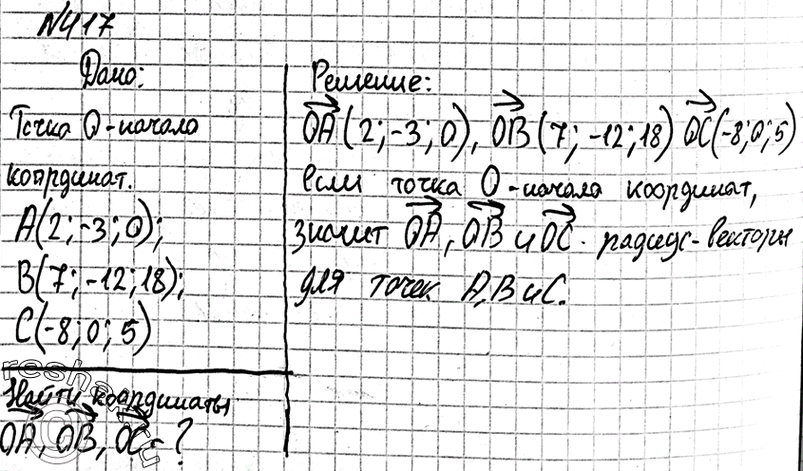 №417
Дано:
Точка О-начало
координат.
А(2;-3;0);
В(7;-12;18);
С(-8;0;5)
Найти координаты
ОА, ОВ, ОС-?
Решение:
ОА(2;-3;0), ОВ(7;-12;18) ОС(-8;0;5)
Если точка О-начала координат,
значит ОА, ОВ и ОС - радиус-векторы
для точек А,В и С.
reshak.ru